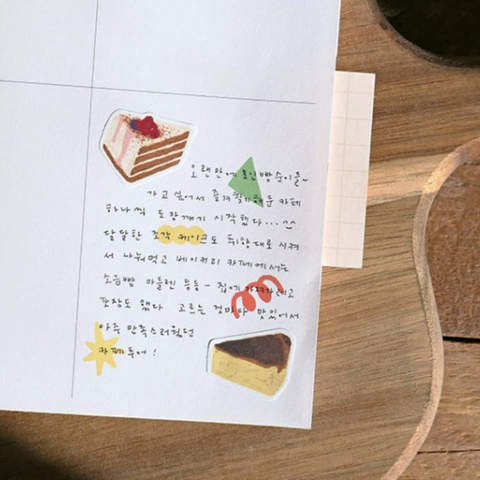 오랜만에 모인 빵순이들~
가고 싶어서 즐겨찾기 해둔 카페
하나씩 도장깨기 시작했다... ^^
달달한 조각 케이크도 취향대로 시켜
서 나눠먹고 베이커리 카페에서는
소금빵 마들렌 등등 - 집에 가져가려고
포장도 했다 고르는 것마다 맛있어서
아주 만족스러웠던
카페 투어!